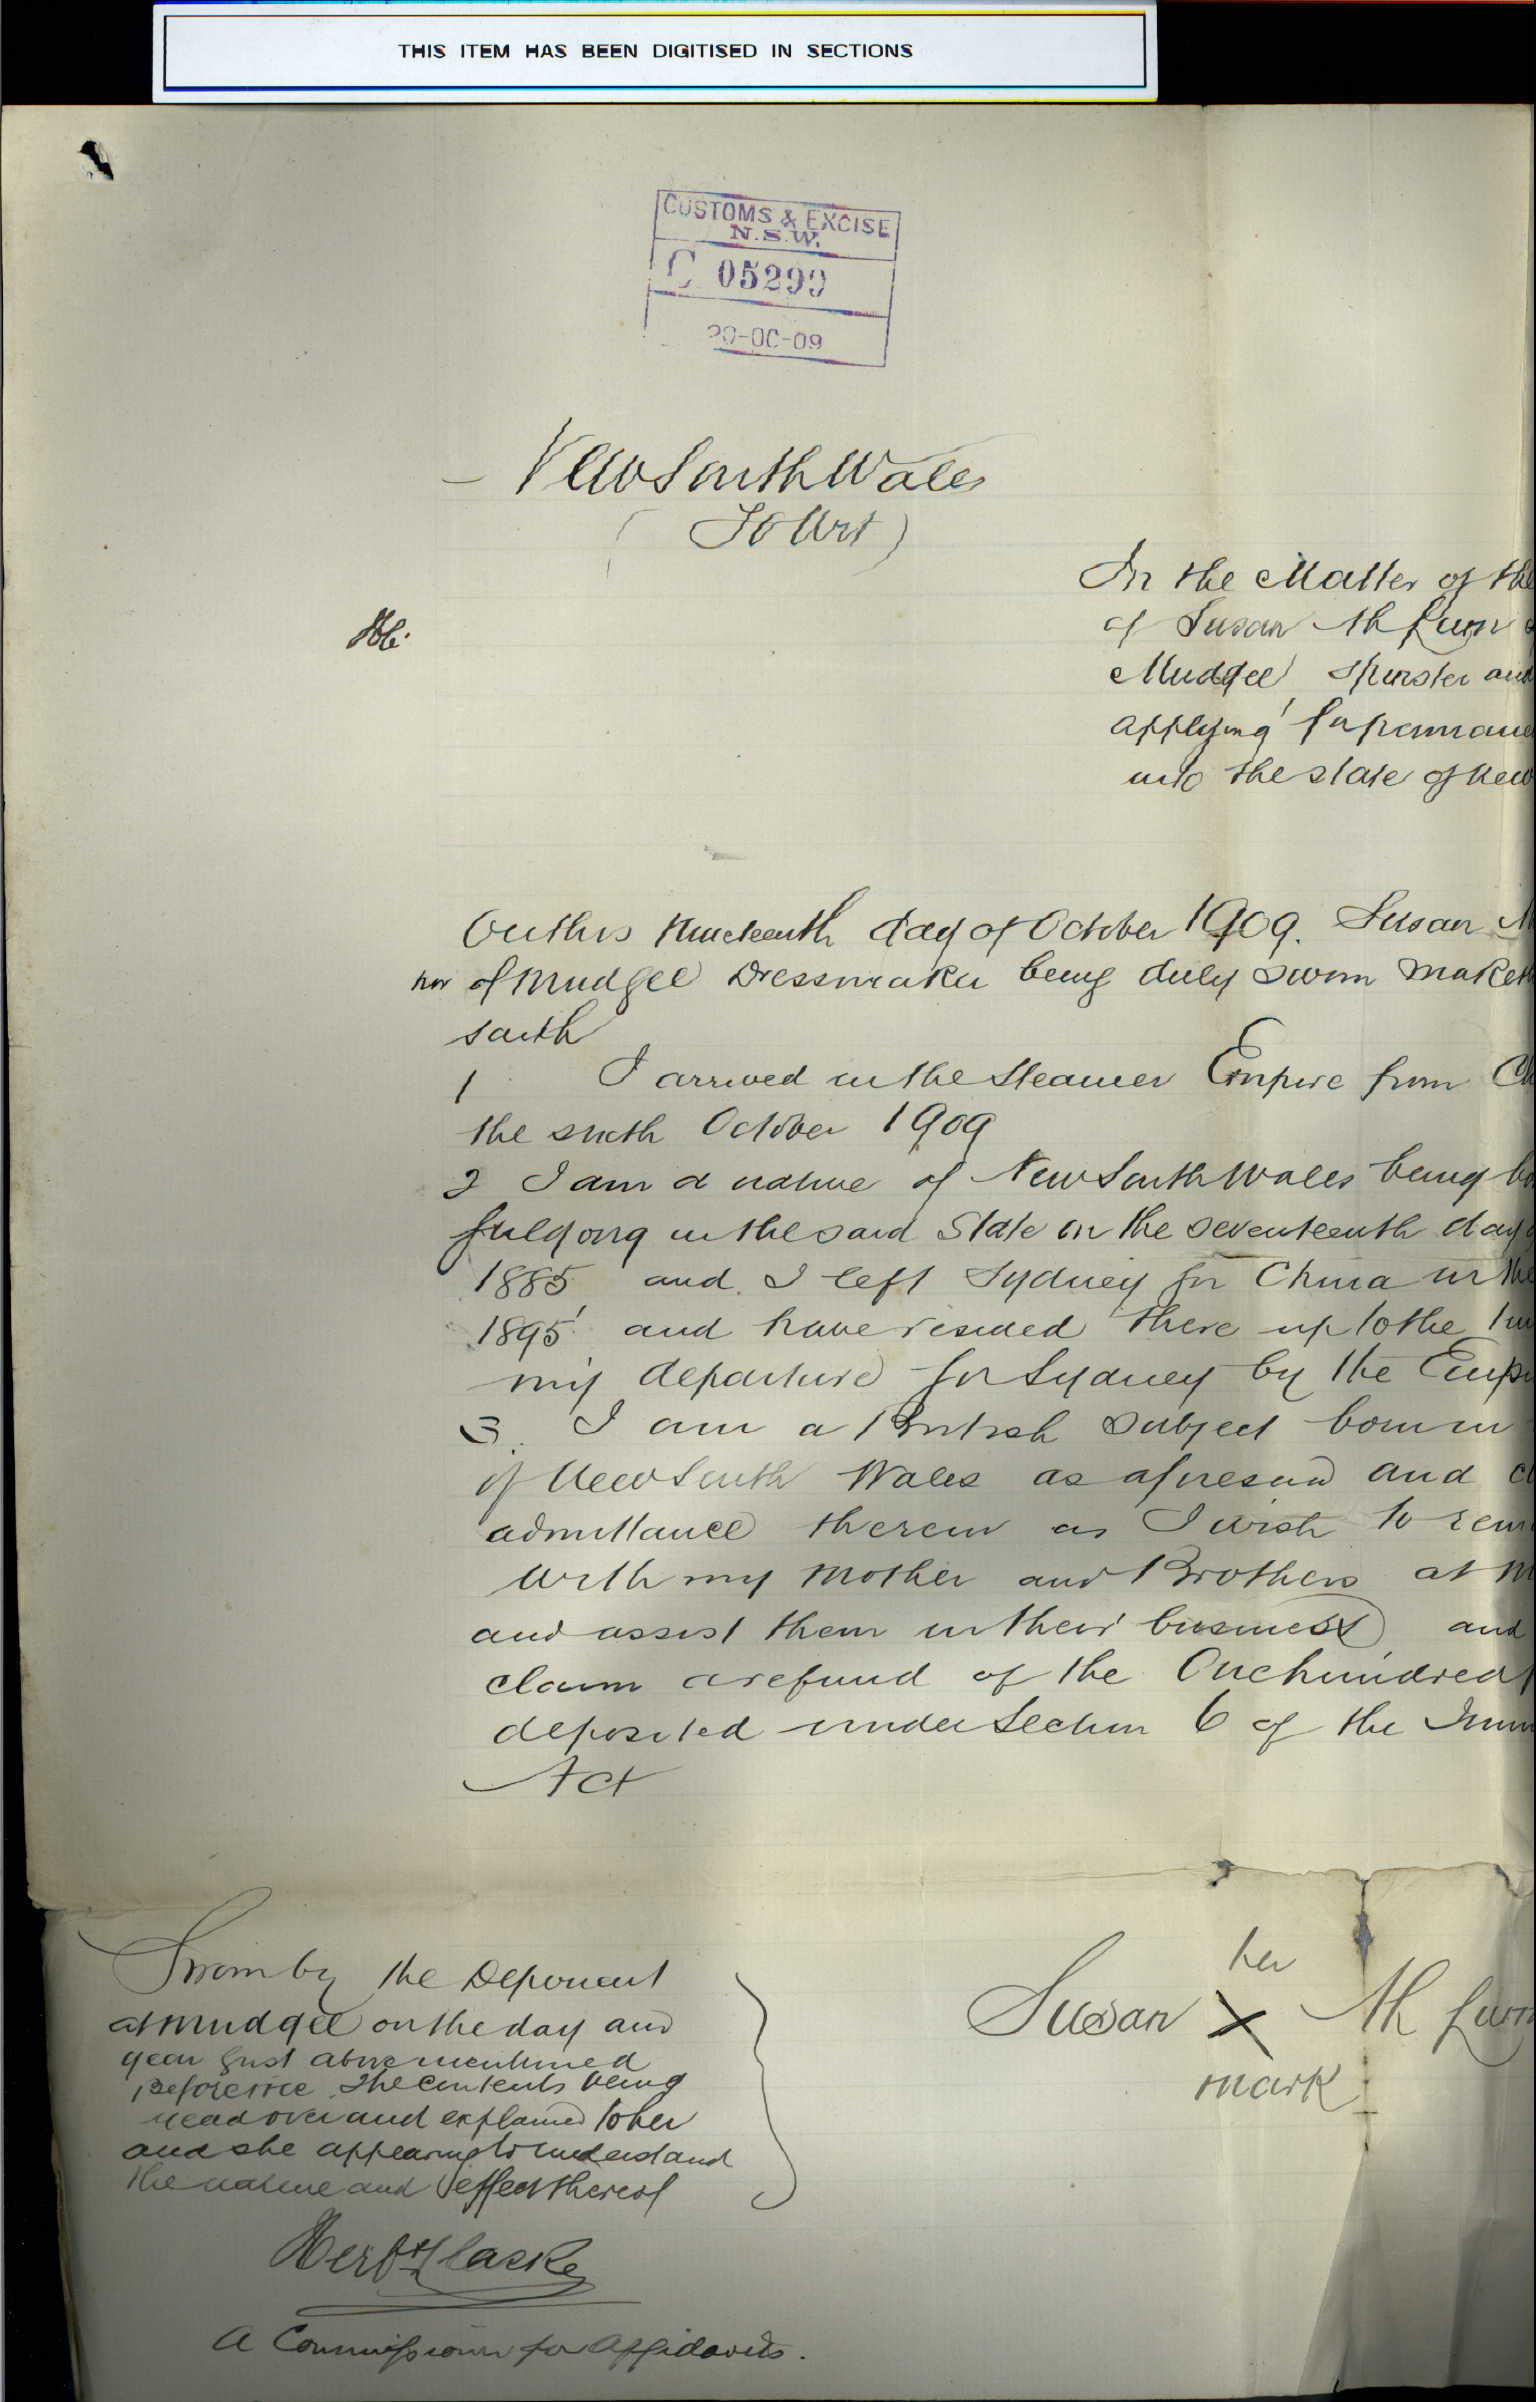 THIS ITEM HAS BEEN DIGITISED IN SECTIONS
CUSTOMS & EXCISE
N.S.W.
C 05299
20-OC-09
New South Wales
(To Wit)
In the Matter of the
of Susan Ah Lum
Mudgee Spinster and
applying for permane
into the state of New
On this Nineteenth day of October 1909. Susan
now of Mudgee Dressmaker being duly sworn maketh
saith
1 I arrived in the Steamer Empire from Ch
the sixth October 1909
2 I am a native of New South Wales being bo
Gulgong in the said State on the seventeenth day
1885 and I left Sydney for China in the
1895 and have resided there up to the
my departure for Sydney by the Empi
3. I am a British subject born in
of New South Wales as aforesaid and
admittance therein as I wish to
with my Mother and Brothers at M
and assist them in their business and
claim a refund of the One hundred
deposited under Section 6 of the Imm
Act
Sworn by the Deponent
at Mudgee on the day and
year first above mentioned
Before me The contents being
read over and explained to her
and she appearing to understand
the nature and effect thereof
her
Susan X Ah Lum
mark
A Commissioner for Affidavits.